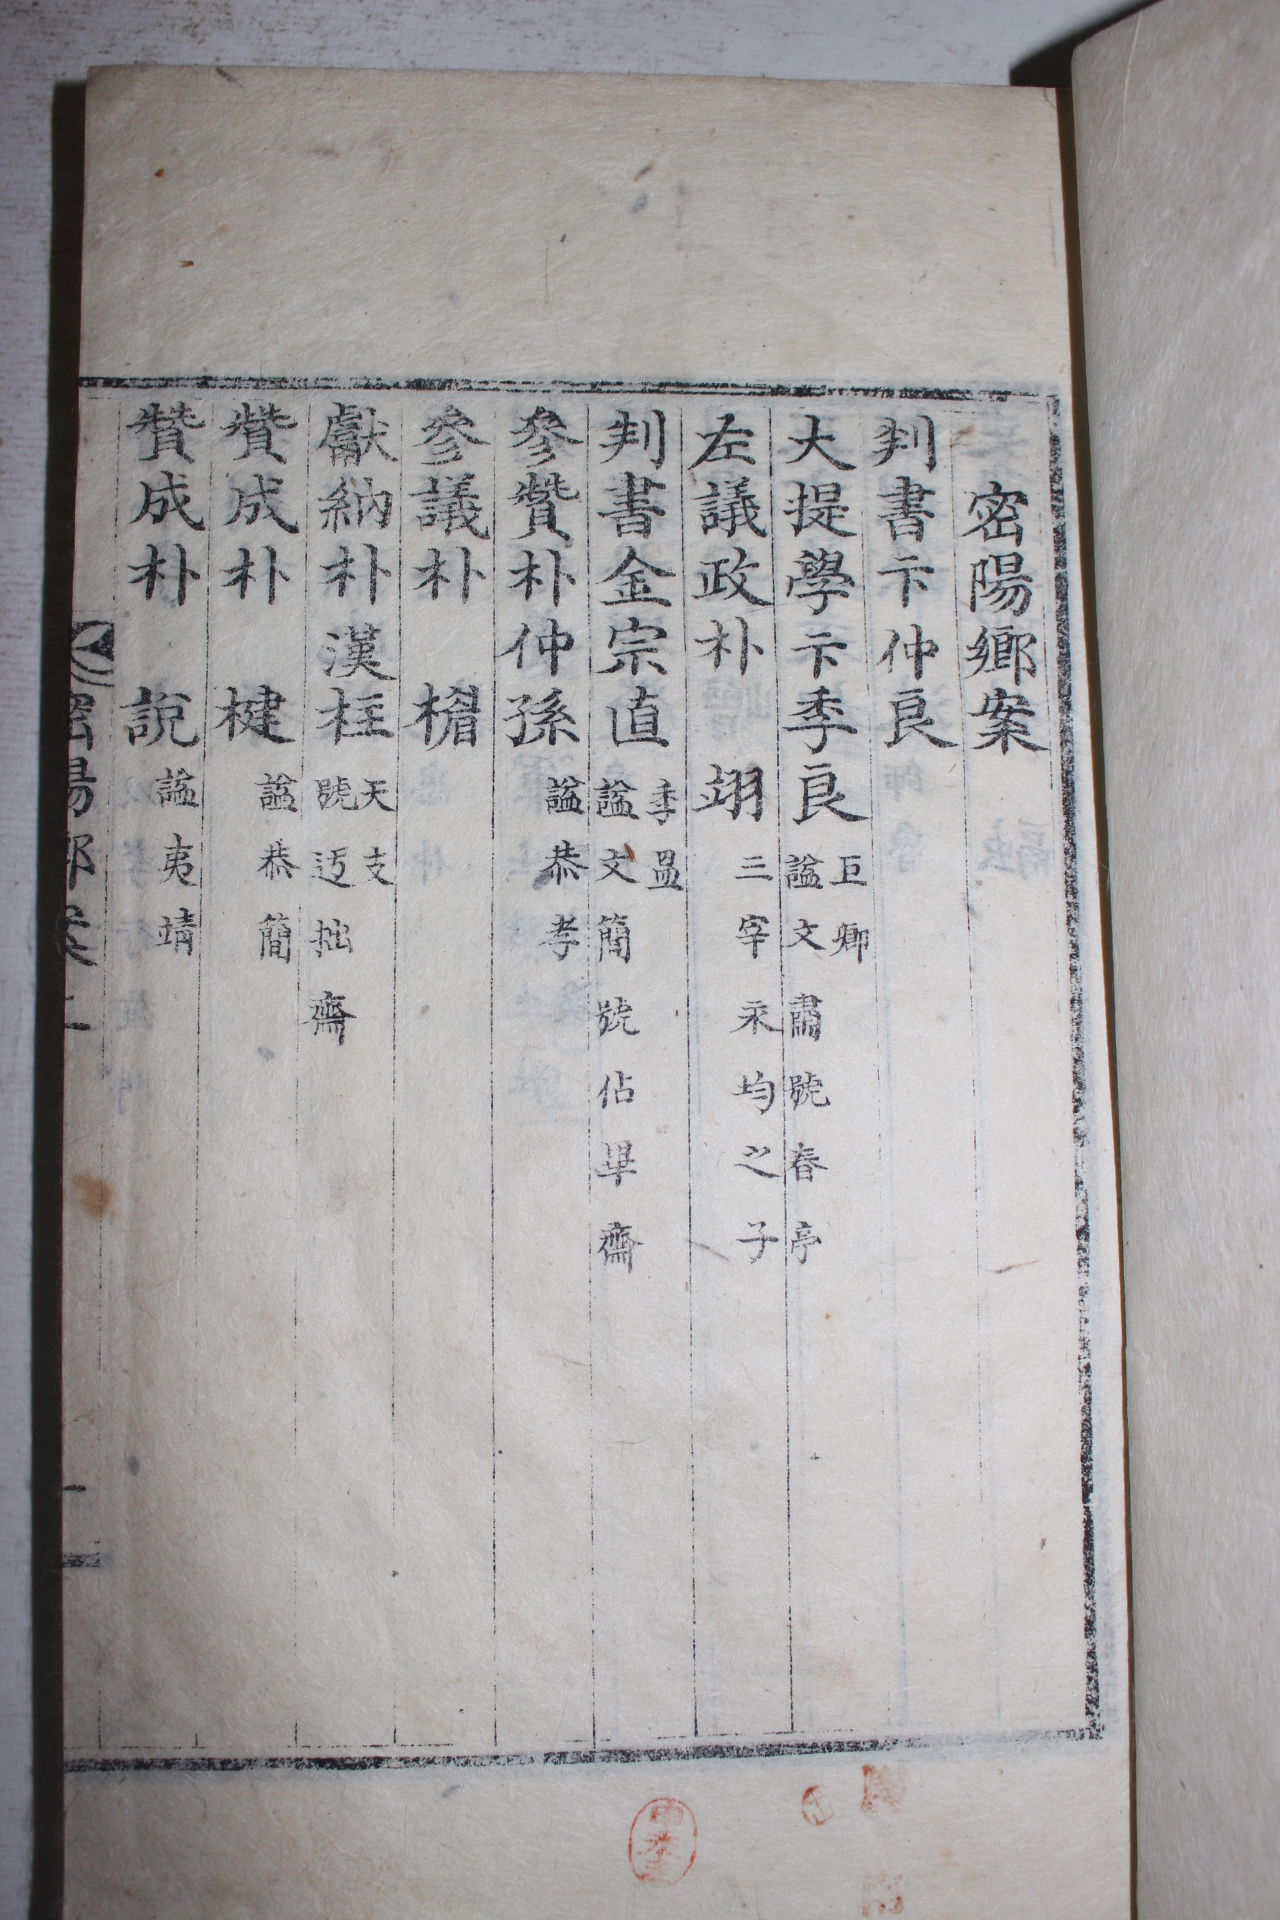 密陽鄉案
判書卞仲良
大提學卞季良 巨卿 諡文肅號春亭
左議政朴 翊 三宰永均之子
判書金宗直 季昷 諡文簡號佔畢齋
參贊朴仲孫 諡恭孝
參議朴 楯
獻納朴漢柱 天支 號迂拙齋
贊成朴 楗 諡恭簡
贊成朴 說 諡夷靖
密陽鄉案